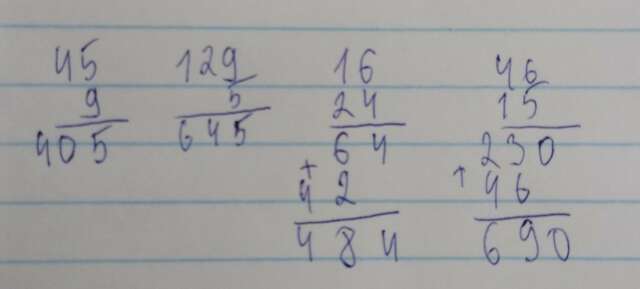 45 129 16 46
9 5 24 15
405 645 64 230
+ 42 + 46
484 690